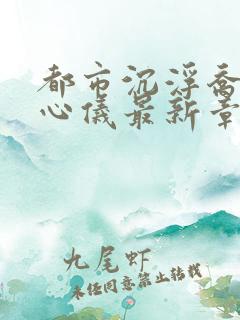 都市沉浮乔
心仪最新章
九尾虾
未经同意禁止转载